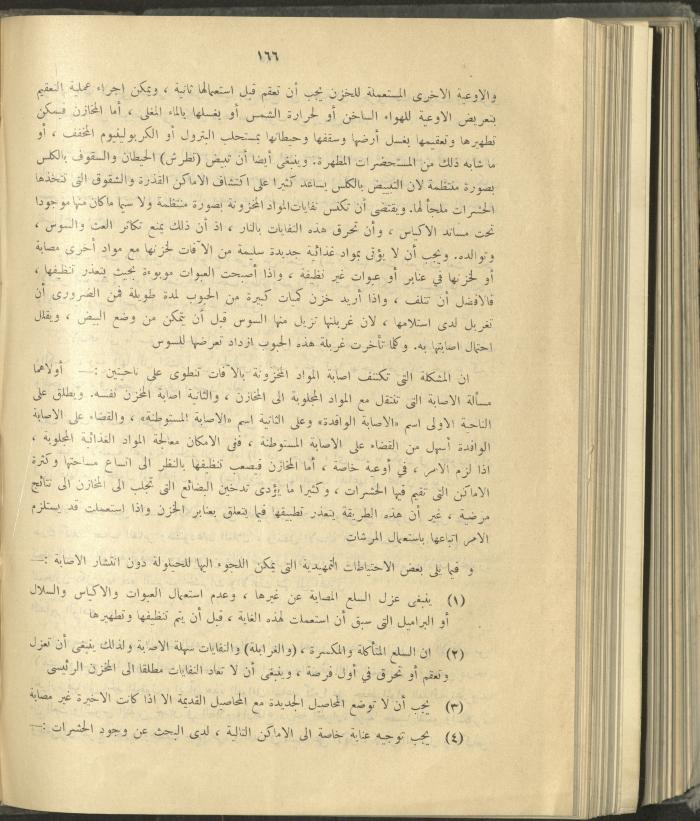 ١٦٦
والاوعية الاخرى المستعملة للخزن يجب أن تعقم قبل استعمالها ثانية ، ويمكن اجراء عملية التعقيم
بتعريض الاوعية للهواء الساخن أو لحرارة الشمس أو بغسلها بالماء المغلى ، أما المخازن فيمكن
تطهيرها وتعقيمها بغسل أرضها وسقفها وحيطانها بمستحلب البترول أو الكربولينيوم المخفف ، أو
ما شابه ذلك من المستحضرات المطهرة. وينبغى أيضا أن تبيض (تطرش) الحيطان والسقوف بالكلس
بصورة منتظمة لان التبييض بالكلس يساعد كثيرا على اكتشاف الاماكن القذرة والشقوق التى تتخذها
الحشرات ملجأ لها. ويقتضى أن تكنس نفايات المواد المخزونة بصورة منتظمة ولا سيما ماكان منها موجودا
تحت مساند الاكياس ، وأن تحرق هذه النفايات بالنار ، اذ أن ذلك يمنع تكاثر العث والسوس ،
وتوالده. ويجب أن لا يؤتى بمواد غذائية جديدة سليمة من الآفات لخزنها مع مواد أخرى مصابة
أو لخزنها في عنابر أو عبوات غير نظيفة ، واذا أصبحت العبوات موبوءة بحيث يتعذر تنظيفها ،
فالافضل أن تتلف ، واذا أريد خزن كميات كبيرة من الحبوب لمدة طويلة فمن الضرورى أن
تغربل لدى استلامها ، لان غربلتها تزيل منها السوس قبل أن يتمكن من وضع البيض ، ويقلل
احتمال اصابتها به. وكلما تأخرت غربلة هذه الحبوب ازداد تعرضها للسوس
ان المشكلة التى تكتنف اصابة المواد المخزونة بالآفات تنطوى على ناحيتين :— أولاهما
مسألة الاصابة التى تنتقل مع المواد المجلوبة الى المخازن ، والثانية اصابة المخزن نفسه. ويطلق على
الناحية الاولى اسم «الاصابة الوافدة» وعلى الثانية اسم «الاصابة المستوطنة» ، والقضاء على الاصابة
الوافدة أسهل من القضاء على الاصابة المستوطنة ، ففى الامكان معالجة المواد الغذائية المجلوبة ،
اذا لزم الامر ، في أوعية خاصة ، أما المخازن فيصعب تنظيفها بالنظر الى اتساع مساحتها وكثرة
الاماكن التى تقيم فيها الحشرات ، وكثيرا ما يؤدى تدخين البضائع التى تجلب الى المخازن الى نتائج
مرضية ، غير أن هذه الطريقة يتعذر تطبيقها فيما يتعلق بعنابر الخزن واذا استعملت قد يستلزم
الامر اتباعها باستعمال المرشات
و فيما يلى بعض الاحتياطات التمهيدية التى يمكن اللجوء اليها للحيلولة دون انتشار الاصابة :—
(١) ينبغى عزل السلع المصابة عن غيرها ، وعدم استعمال العبوات والاكياس والسلال
أو البراميل التى سبق أن استعملت لهذه الغاية ، قبل أن يتم تنظيفها وتطهيرها
(٢) ان السلع المتآكلة والمكسرة ، (والغرابلة) والنفايات سهلة الاصابة ولذلك ينبغى أن تعزل
وتعقم أو تحرق في أول فرصة ، وينبغى أن لا تعاد النفايات مطلقا الى المخزن الرئيسى
(٣) يجب أن لا توضع المحاصيل الجديدة مع المحاصيل القديمة الا اذا كانت الاخيرة غير مصابة
(٤) يجب توجيه عناية خاصة الى الاماكن التالية ، لدى البحث عن وجود الحشرات :—